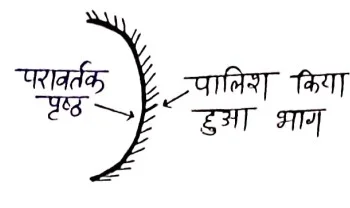 परावर्तक
पृष्ठ
पालिश किया
हुआ भाग